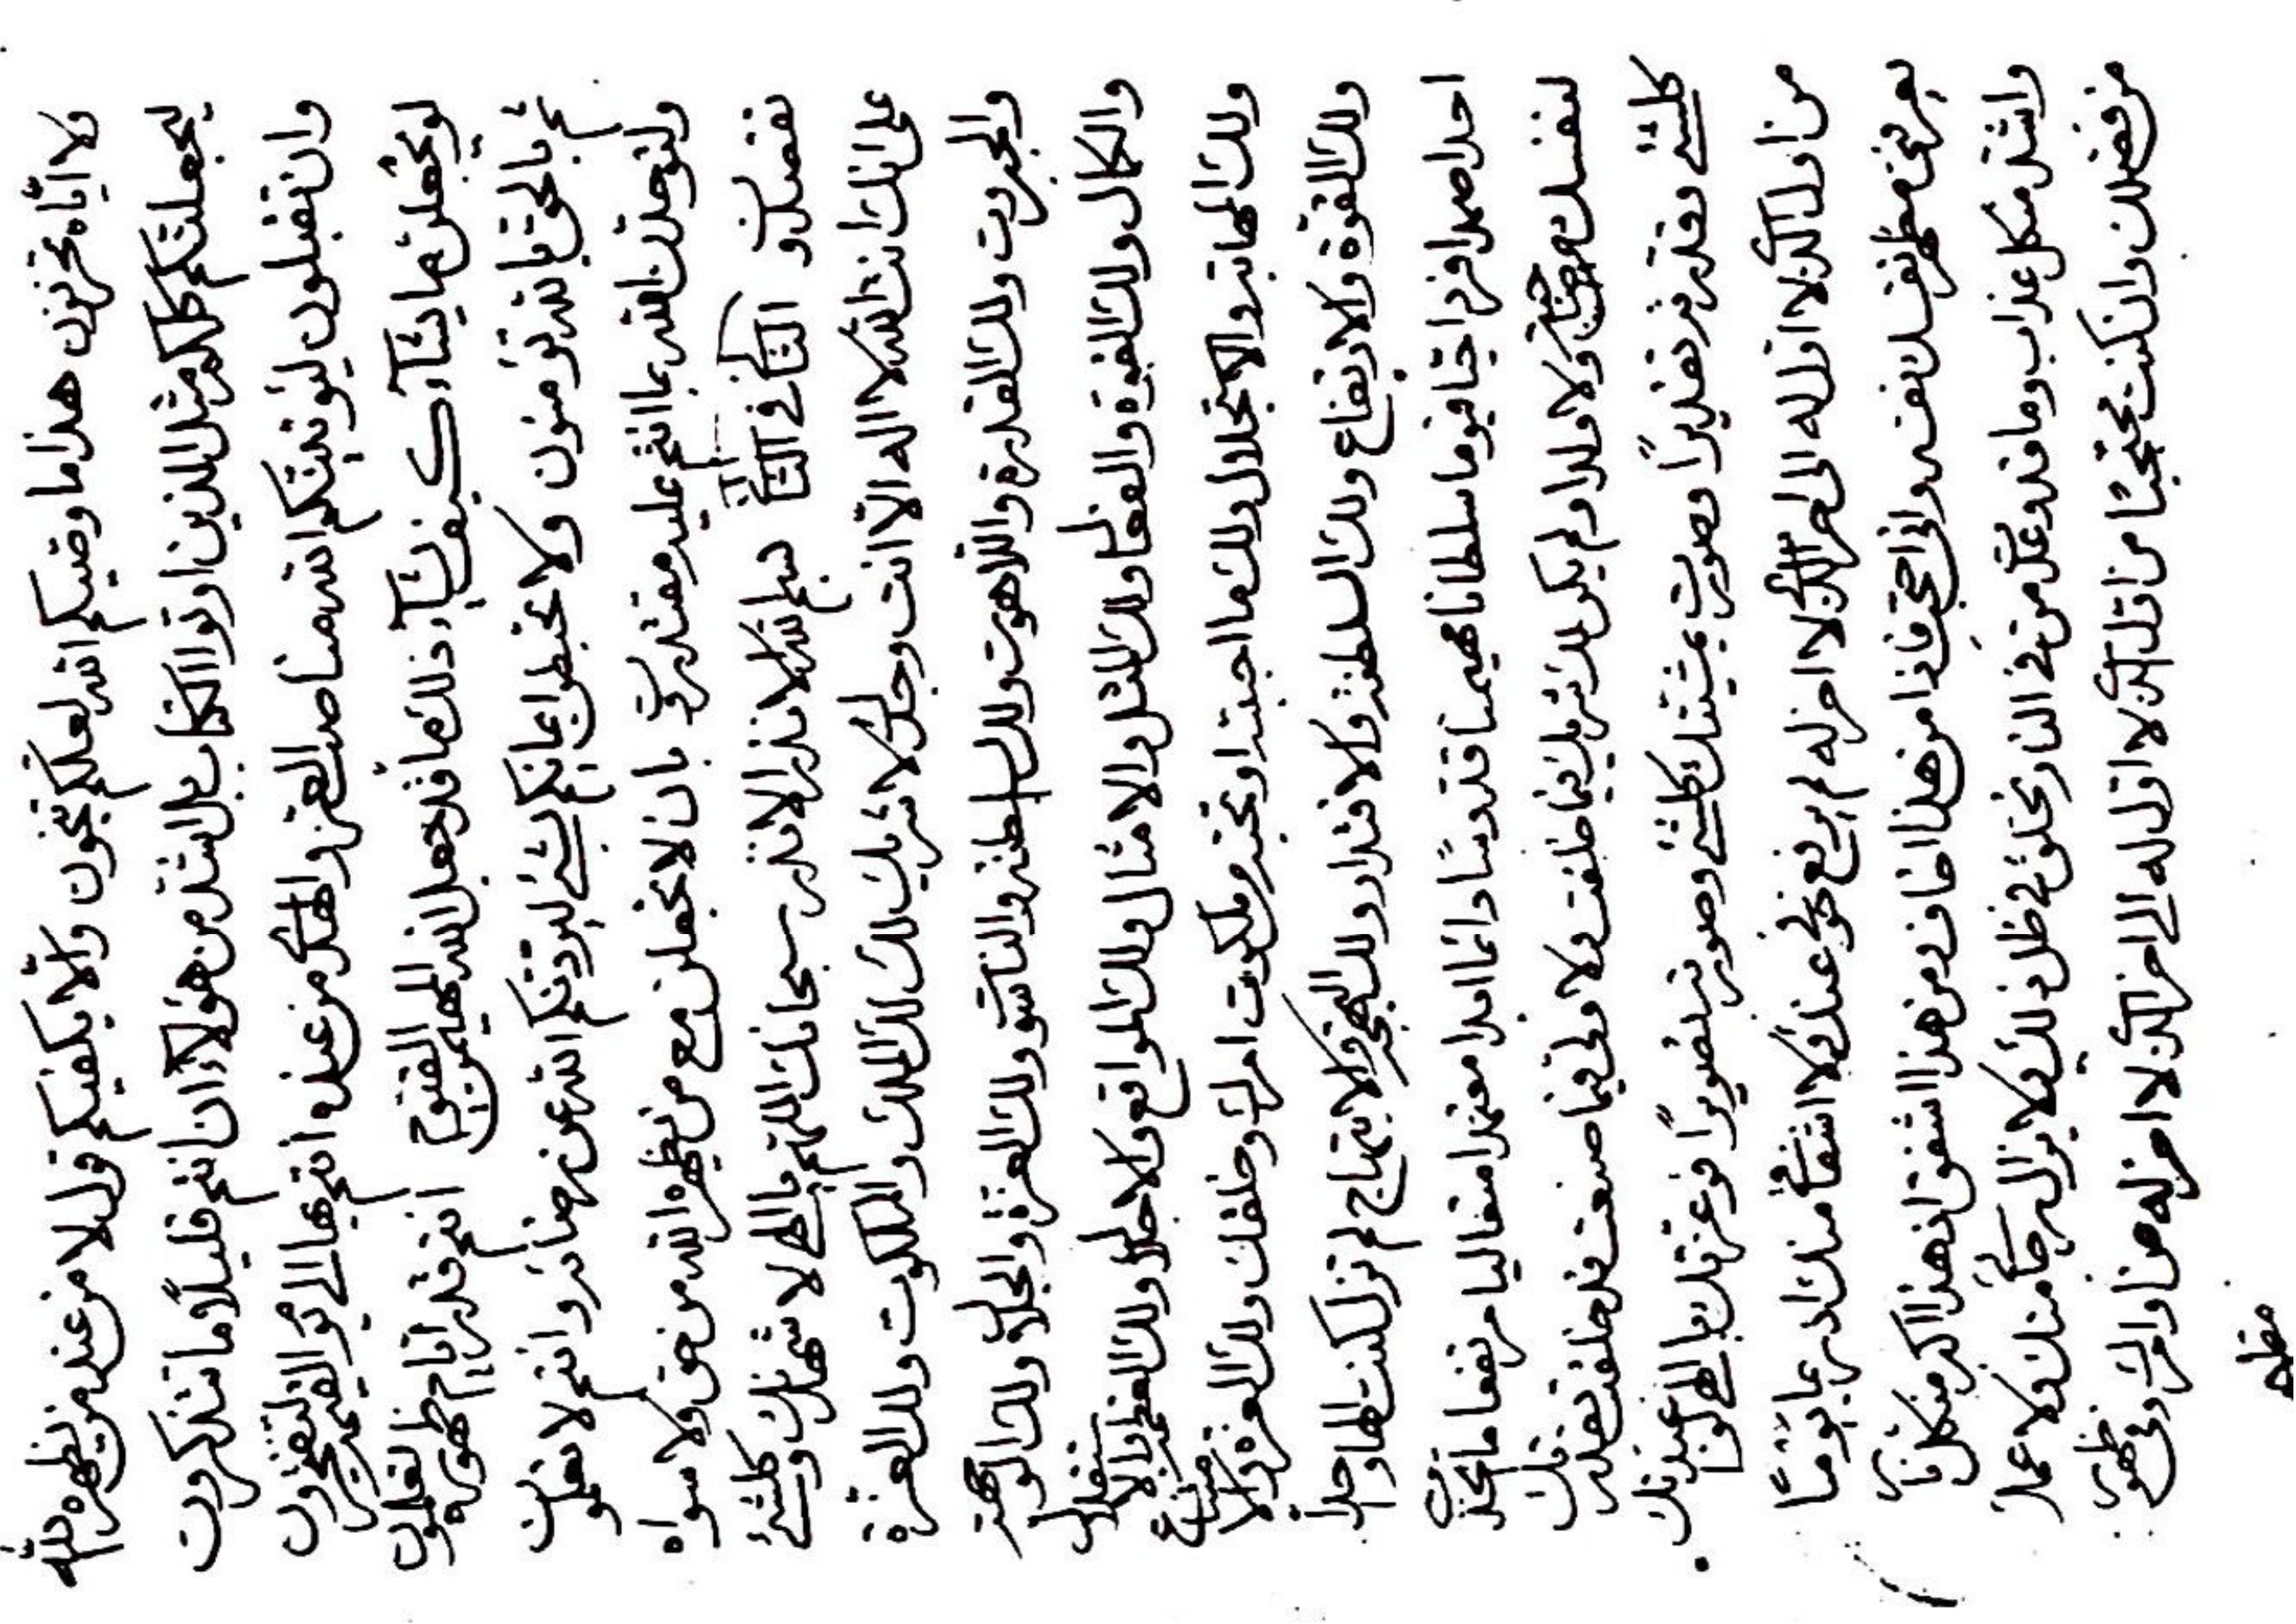 ولا اياه تحزنون هذا ما وصيكم الله لعلكم تنجون والا يكفيكم قول لا من عند من يظهره الله
ليجعلنكم كلكم مثل الذين اوتوا الكتاب بل اشد من هؤلاء ان انتم قليلا ما تتذكرون
وان تقبلون ليؤتينكم الله مناصب العز والهدى من عنده انتم بها الى يوم القيمة لتفتخرون
ليجعلن ما يشاء كيف يشاء ذلك ما قد جعل الله المهيمن القيوم انتم قدر ايام ظهوره لتعلمون
ثم بالحق بالله تؤمنون ولا تحبطوا ايمانكم بشئ ليردنكم الله عن رضائه وانتم لا تعلمون
ولتوحدن الله بما انتم عليه مقتدرون بان لا تجعلن مع من يظهره الله من حق ولا سواه
الثاني في الثاني بسم الله الاقدر الاقدر سبحانك اللهم يا الهي لاشهدنك وكلشئ
على انك انت الله لا اله الا انت وحدك لا شريك لك لك الملك والملكوت ولك العزة
والجبروت ولك القدرة واللاهوت ولك السلطنة والناسوت ولك العزة والجلال ولك الوجهة
والكمال ولك القوة والفعال ولك المثل والامثال ولك المواقع والاجلال ولك العظمة والاستقلال
ولك المهابة والاجلال ولك ما احببته او تحبه من ملكوت امرك وخلقك ولك العزة والامتناع
ولك القوة والارتفاع ولك السلطنة والاقتدار ولك البهجة والابتهاج لم تزل كنت الها واحدا
احدا صمدا فردا حيا قيوما سلطانا مهيمنا قدوسا دائما ابدا معتمدا متعاليا مرتفعا ما اتخذت
لنفسك صاحبة ولا ولدا ولم يكن لك شريك فيما خلقت ولا ولي فيما صنعت قد خلقت بقدرتك
كلشئ وقدرته تقديرا وصورت بمشيتك كلشئ وصورته تصويرا فوعزتك يا الهي لو اعبدنك
من اول الذي لا اول له الى اخر الذي لا اخر له لم يرفع خوفي عندك ولا اشفاقي منك يوما
يعرفني مظهر نفسك نفسه واني احتجب فاذا من هذا اخاف ومن هذا اشفق اذ هذا اكبر من كل نار
واشد من كل عذاب وما قد وعد من في النار يخلق في ظل ذلك ولا يزال رجائي منك ولا عملا
من فضلك وان كنت محتجبا من اول الذي لا اول له الى اخر الذي لا اخر له من اوامرك وفي ظهور
مظهر